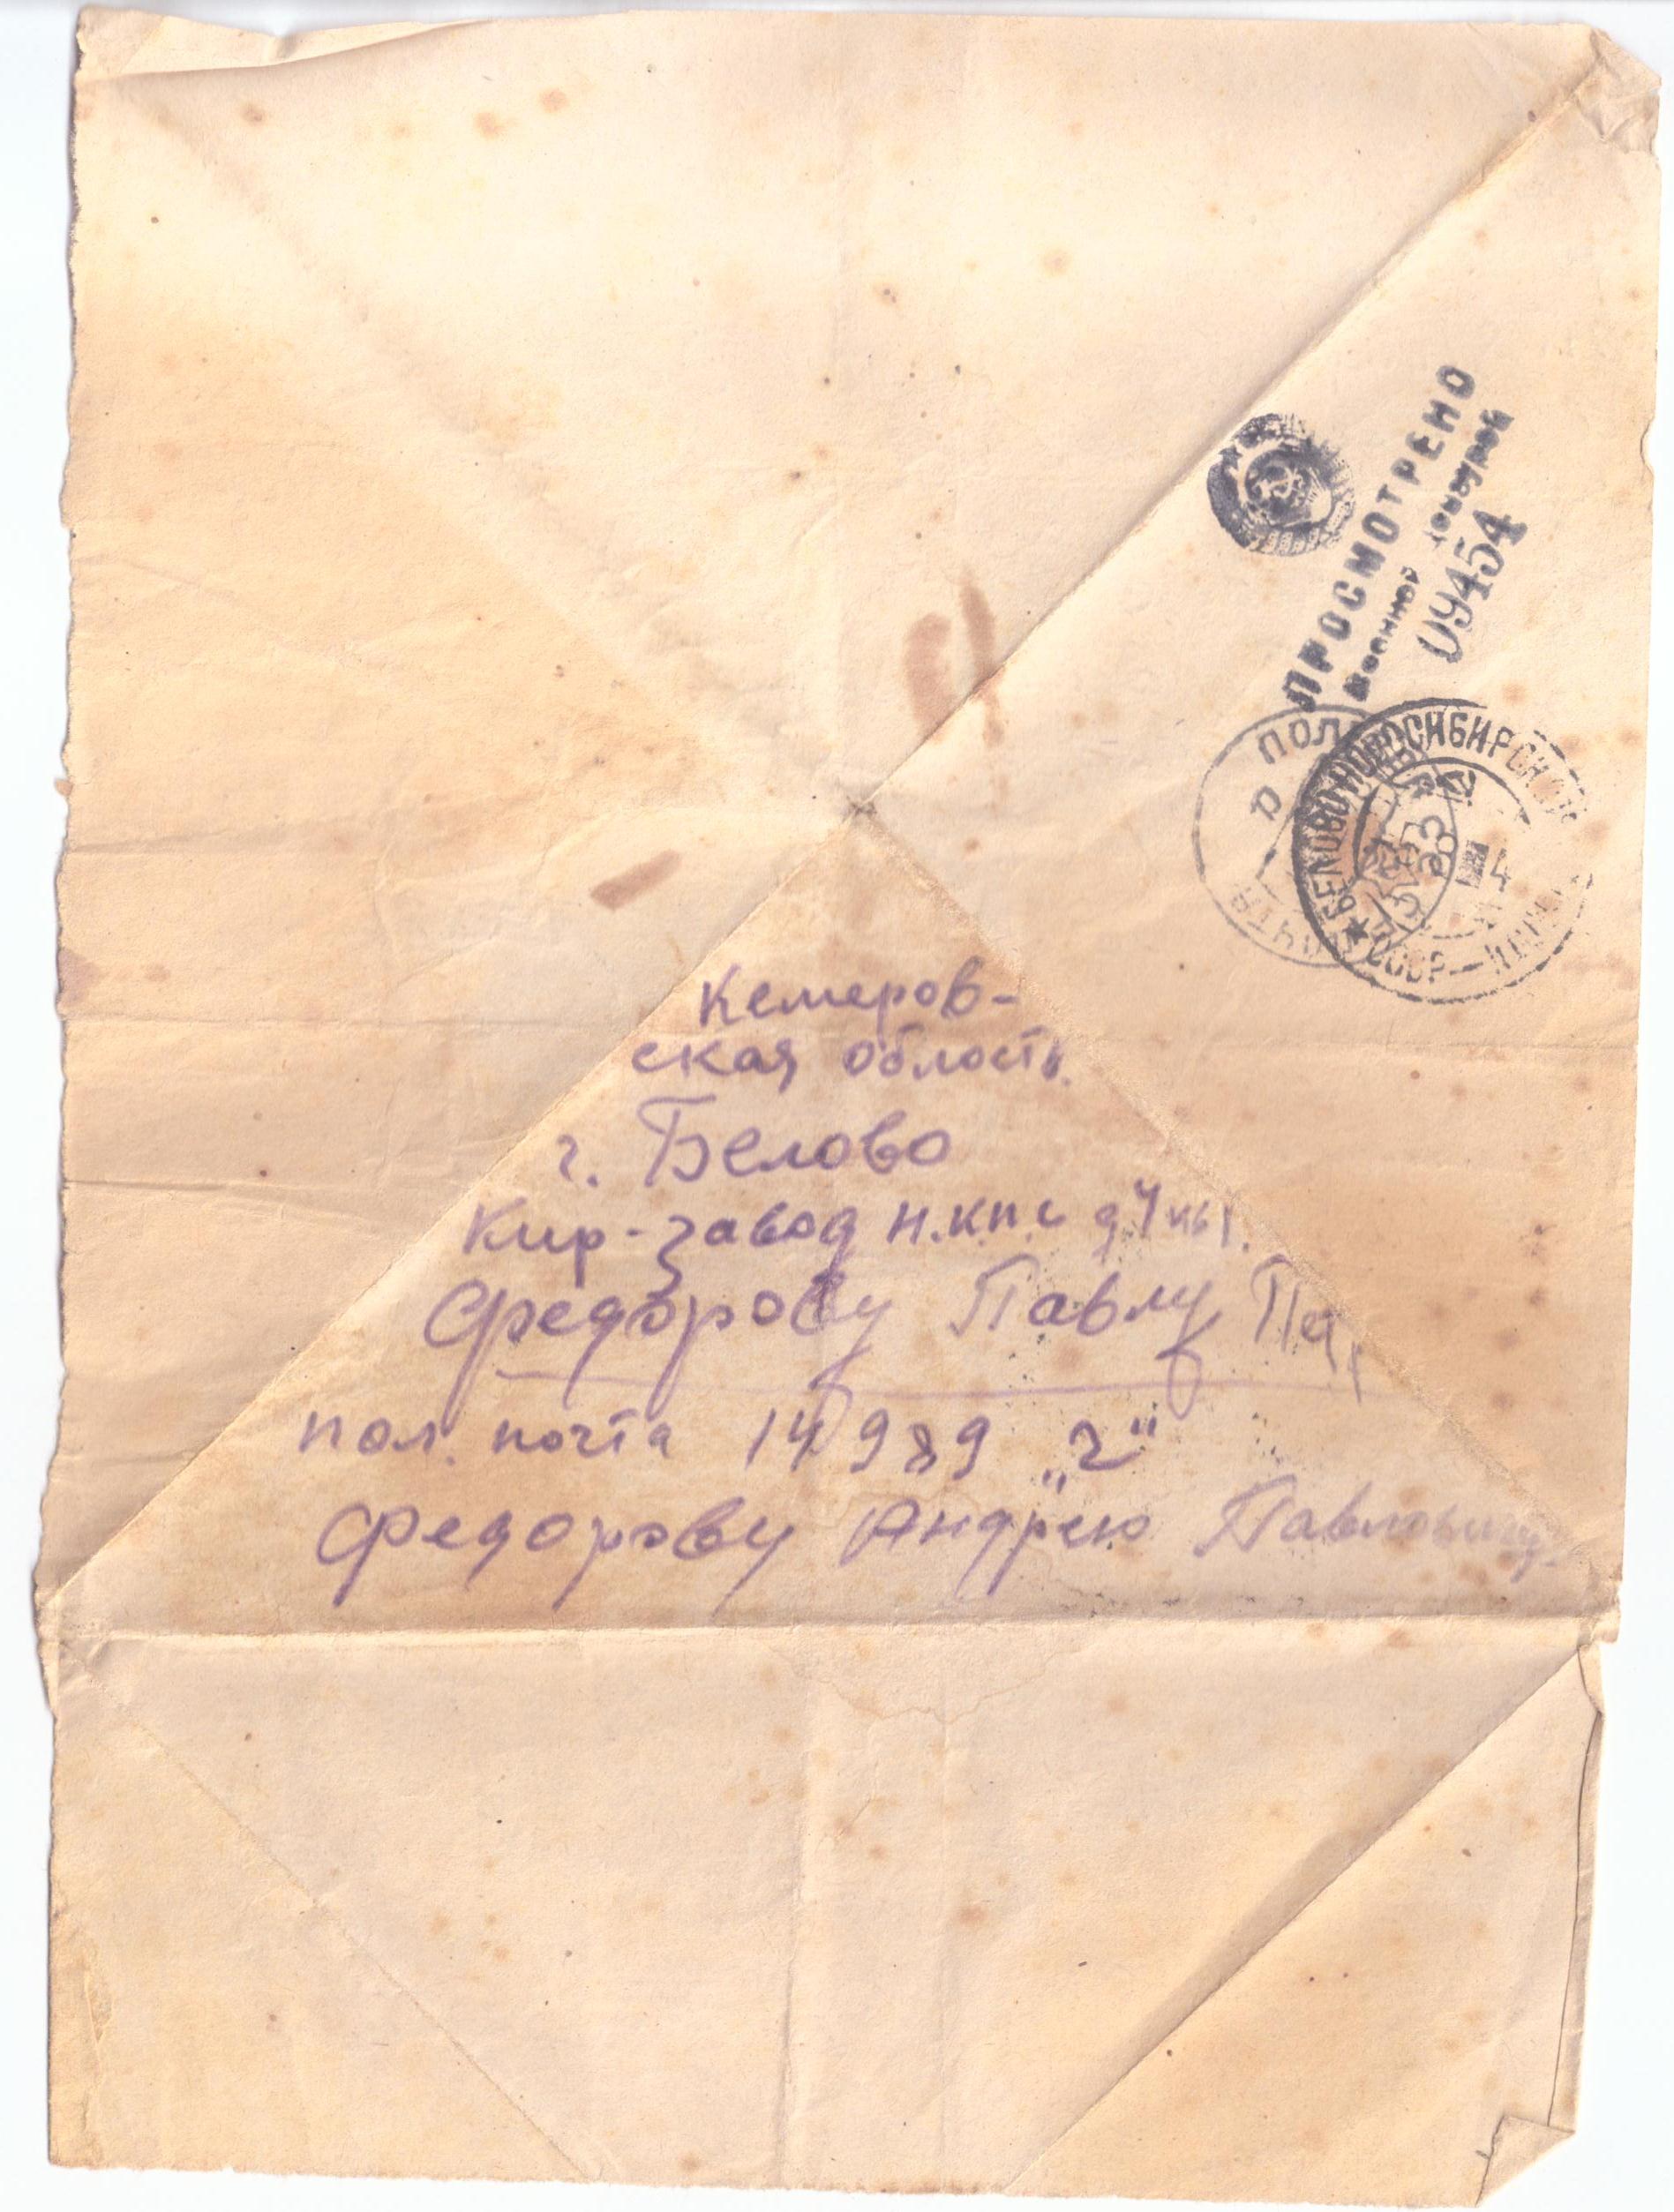 ПРОСМОТРЕНО
Военной Цензурой
09454
ПОЛ
БЕЛОВО НОВОСИБИРСКОЙ
СССР
Кемеров-
ская область.
г. Белово
Кир-завод н.кпс д 4 кв 1.
Федорову Павлу
пол. почта 14989 „г"
Федорову Андрею Павловичу